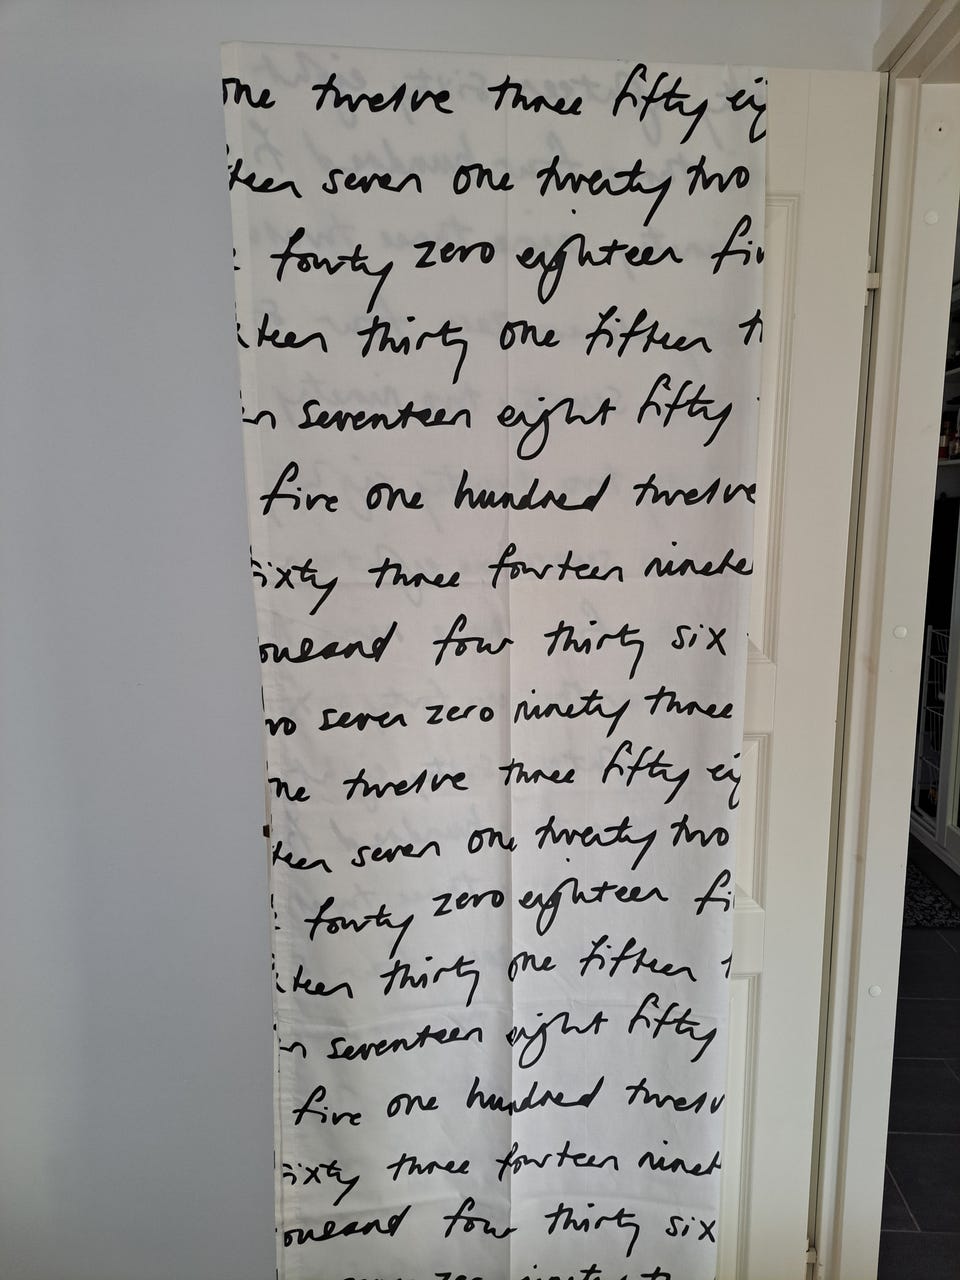 one twelve three fifty eig
teen seven one twenty two
fourty zero eighteen fiv
teen thirty one fifteen t
n seventeen eight fifty
five one hundred twelve
sixty three fourteen ninete
ousand four thirty six
wo seven zero ninety three
ne twelve three fifty eig
teen seven one twenty two
fourty zero eighteen fi
teen thirty one fifteen t
n seventeen eight fifty
five one hundred twelv
sixty three fourteen ninet
ousand four thirty six